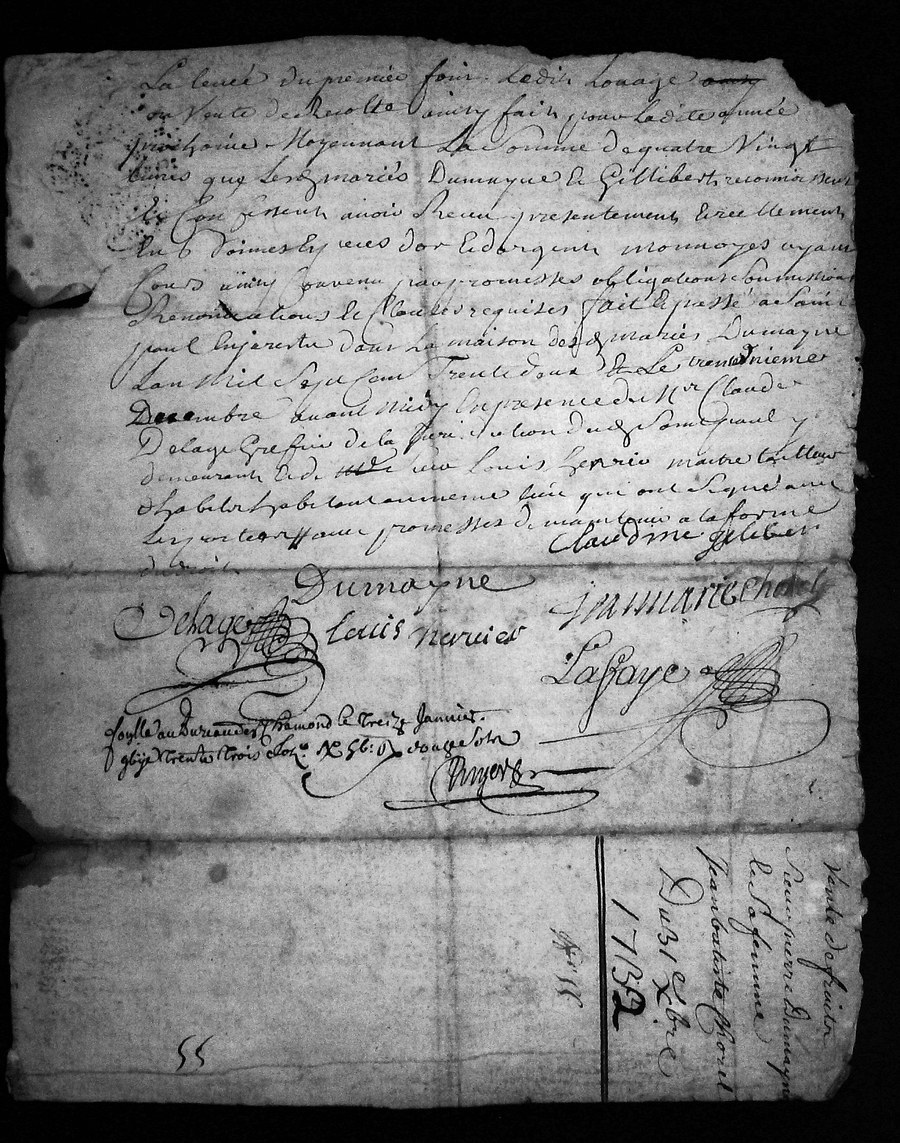 La levée du premier foin. Ledit Louage
ou Vente de Recolte ainsy fait pour Ladite année
prochaine Moyennant La Somme de quatre Vingt
livres que Lesd mariés Dumayne Et Gillibert reconnoissent
Et Confessent avoir Receu presentement Et reellement
En bonnes Especes dor Et dargent monnoyes ayant
Cours ainsy Convenu par promesses obligations soumissions
Renonciations Et Clauses requises fait Et passé a Saint
paul Enjarestu dans La maison desd mariés Dumayne
Lan Mil Sept Cent Trente deux Et Le trente Unieme
Decembre avant midy En presence du Sr Claude
Delage Greffier de la Juridiction dud Saint paul y
demeurant Et de sieur Louis maitre tailleur
habitant au meme lieu qui ont Signé avec
Les parties promesses de maintenir a la forme
du droit
Claudine gilibert
Dumayne
Delage Louis jean marie Chorel
Lafaye
au Bureau de St Chamond le Treize Janvier
Trente Trois
Vente de fruits
Sieur pierre Dumayne
Et Sa femme
Jean batiste Chorel
Du 31 Xbre
1732
55